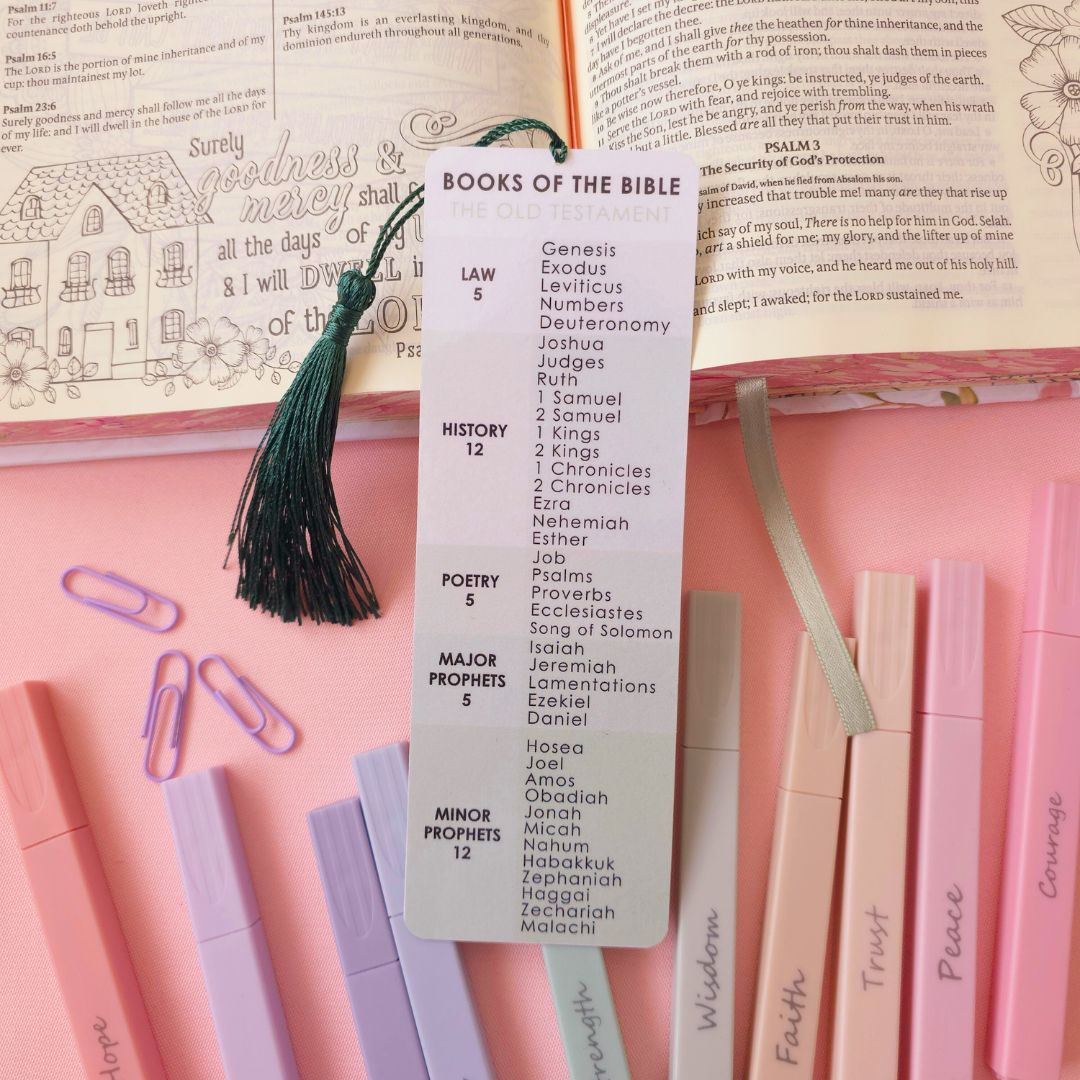 Psalm 11:7
For the righteous LORD loveth right
countenance doth behold the upright.
Psalm 16:5
The LORD is the portion of mine inheritance and of my
cup: thou maintainest my lot.
Psalm 23:6
Surely goodness and mercy shall follow me all the days
of my life: and I will dwell in the house of the LORD for
ever.
Psalm 145:13
Thy kingdom is an everlasting kingdom, and thy
dominion endureth throughout all generations.
Surely
goodness &
mercy shall
all the days of my
& I will DWELL in
of the LOR
Psa
displeasure.
6 Yet have I set my
7 I will declare the decree: the LORD
day have I begotten thee.
8 Ask of me, and I shall give thee the heathen for thine inheritance, and the
uttermost parts of the earth for thy possession.
9 Thou shalt break them with a rod of iron; thou shalt dash them in pieces
like a potter's vessel.
10 Be wise now therefore, O ye kings: be instructed, ye judges of the earth.
Serve the LORD with fear, and rejoice with trembling.
Kiss the Son, lest he be angry, and ye perish from the way, when his wrath
but a little. Blessed are all they that put their trust in him.
PSALM 3
The Security of God's Protection
salm of David, when he fled from Absalom his son.
increased that trouble me! many are they that rise up
ich say of my soul, There is no help for him in God. Selah.
art a shield for me; my glory, and the lifter up of mine
LORD with my voice, and he heard me out of his holy hill.
and slept; I awaked; for the LORD sustained me.
BOOKS OF THE BIBLE
THE OLD TESTAMENT
LAW
5
Genesis
Exodus
Leviticus
Numbers
Deuteronomy
HISTORY
12
Joshua
Judges
Ruth
1 Samuel
2 Samuel
1 Kings
2 Kings
1 Chronicles
2 Chronicles
Ezra
Nehemiah
Esther
POETRY
5
Job
Psalms
Proverbs
Ecclesiastes
Song of Solomon
MAJOR
PROPHETS
5
Isaiah
Jeremiah
Lamentations
Ezekiel
Daniel
MINOR
PROPHETS
12
Hosea
Joel
Amos
Obadiah
Jonah
Micah
Nahum
Habakkuk
Zephaniah
Haggai
Zechariah
Malachi
Hope
rength
Wisdom
Faith
Trust
Peace
Courage